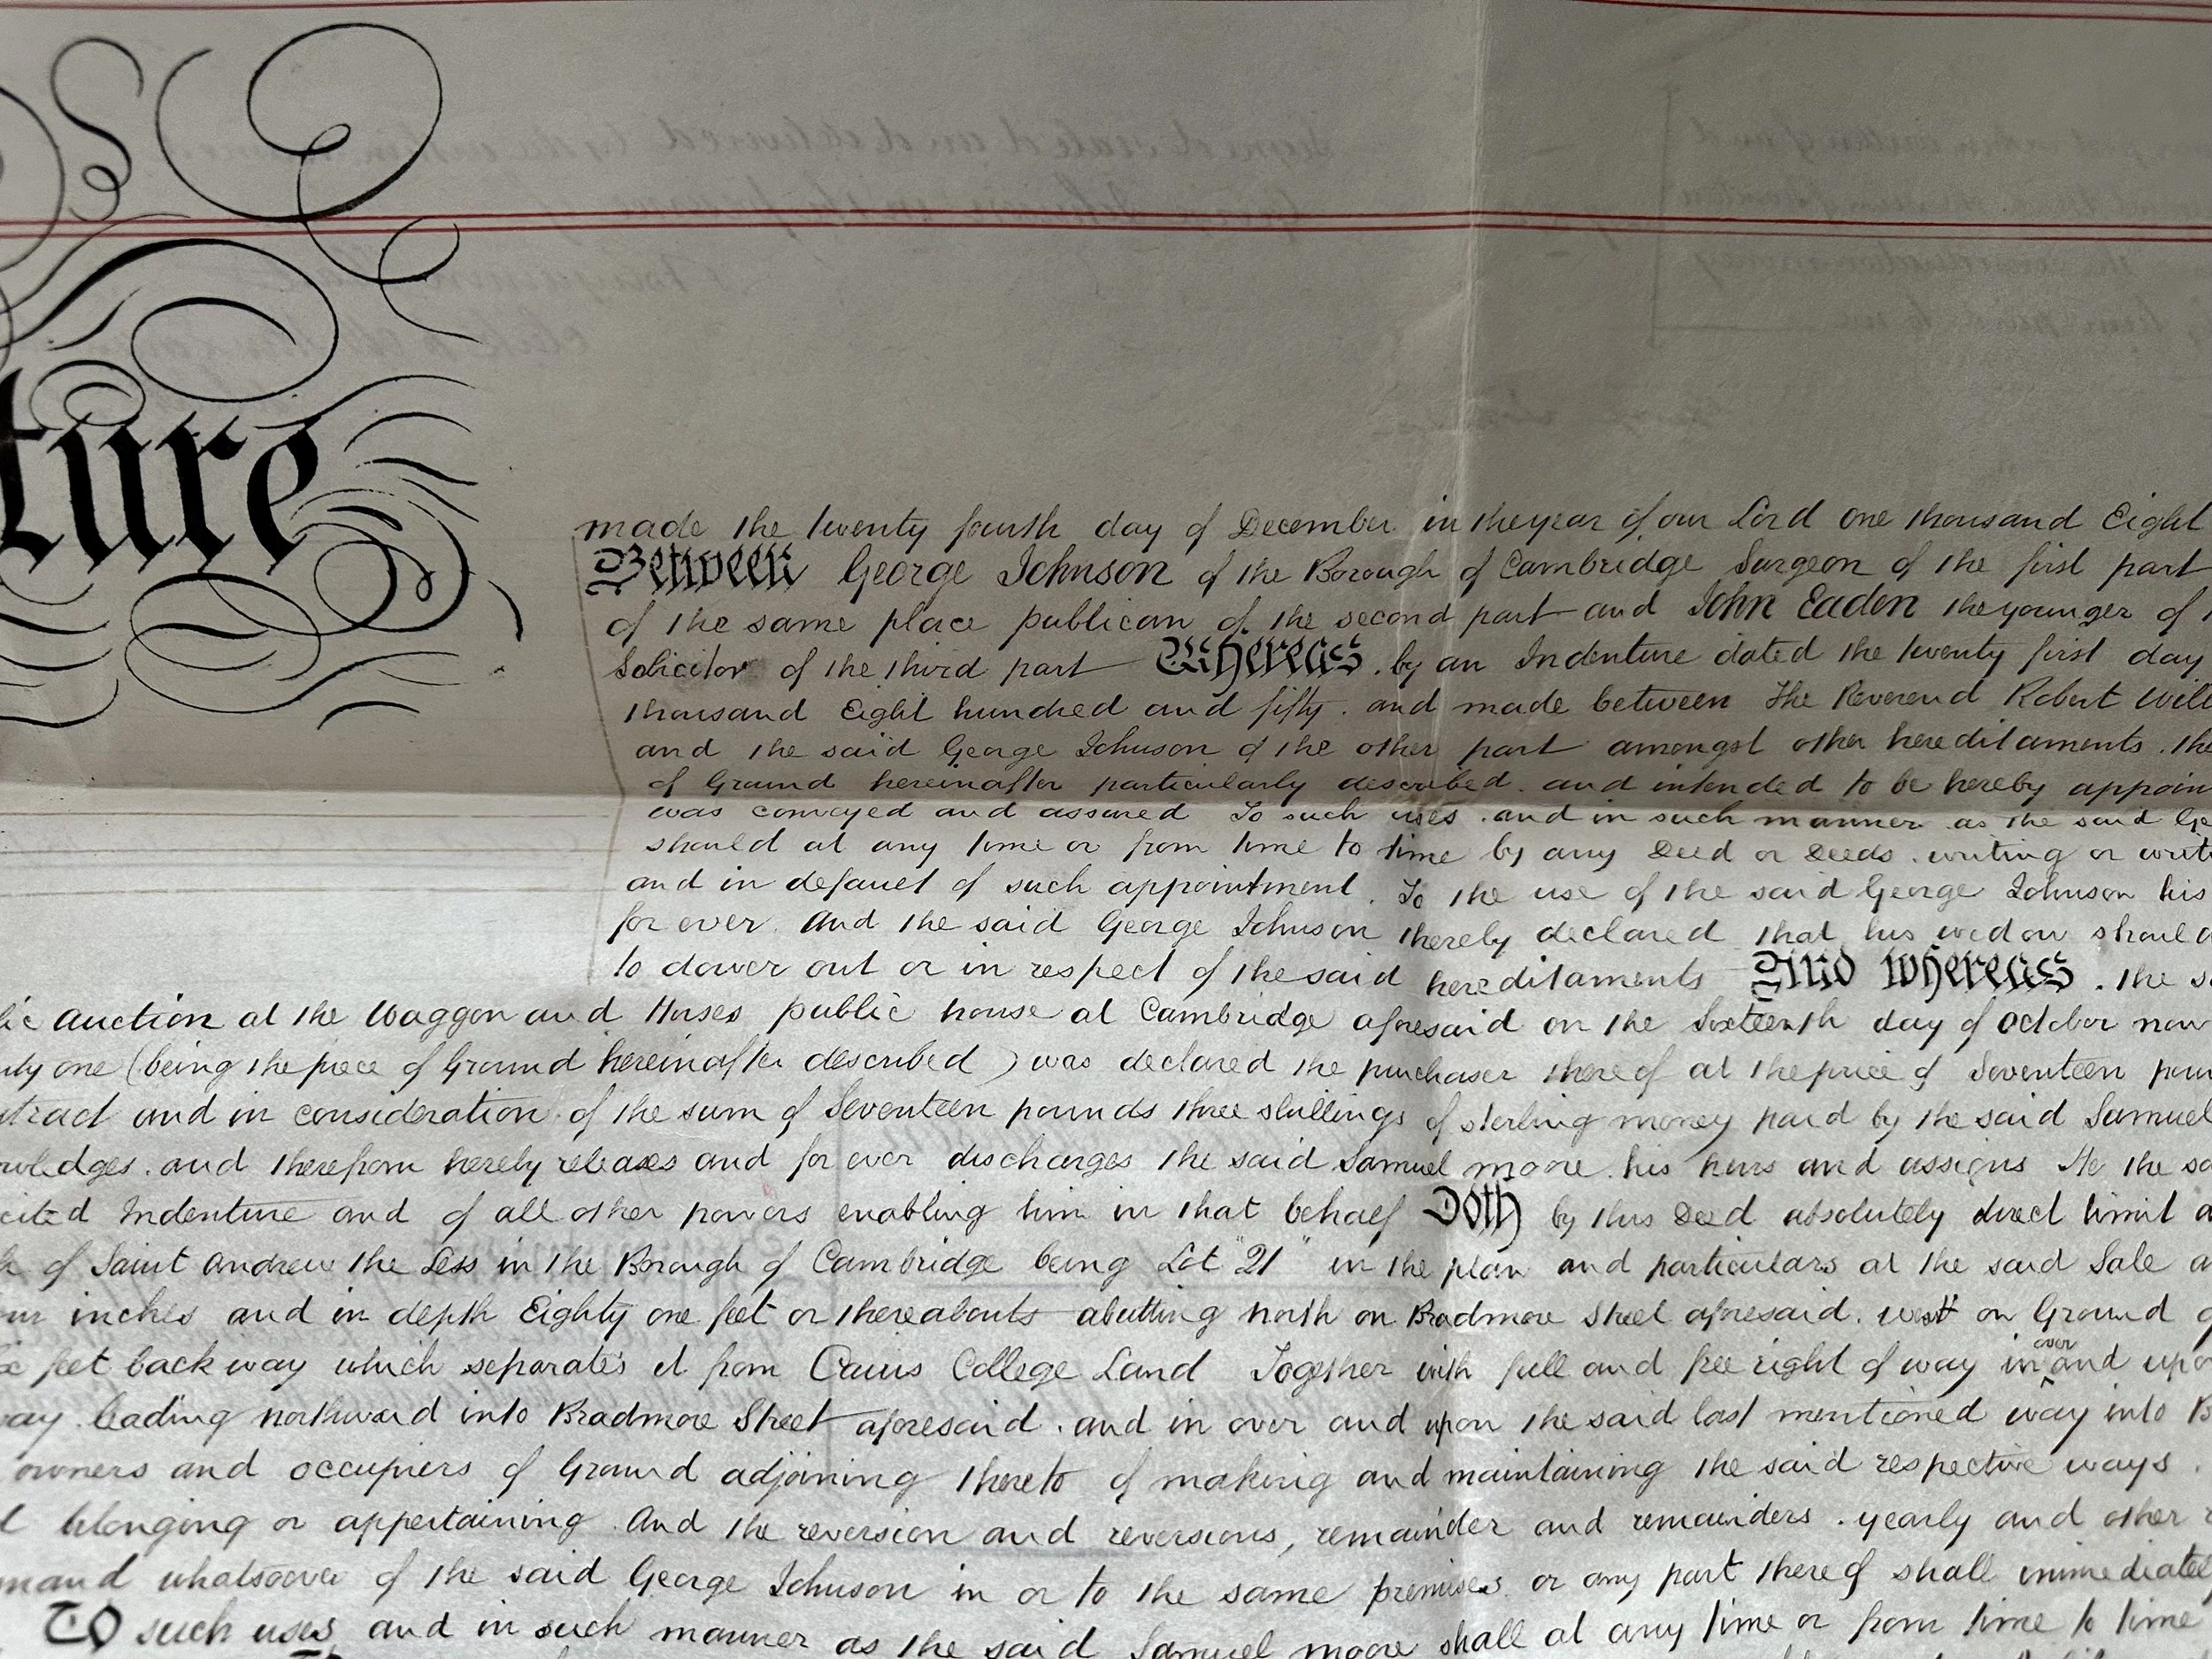 ture
made the twenty fourth day of December in the year of our Lord one thousand Eight
Between George Johnson of the Borough of Cambridge Surgeon of the first part
of the same place publican of the second part and John Eaden the younger of
Solicitor of the third part Whereas by an Indenture dated the twenty first day
thousand Eight hundred and fifty. and made between The Reverend Robert Will
and the said George Johnson of the other part amongst other hereditaments. the
of Ground hereinafter particularly described. and intended to be hereby appoin
was conveyed and assured To such uses. and in such manner as the said Ge
should at any time or from time to time by any Deed or Deeds. writing or writ
and in default of such appointment. To the use of the said George Johnson his
for ever. And the said George Johnson thereby declared that his widow should
to dower out or in respect of the said hereditaments And Whereas. the s
lic Auction at the Waggon and Horses public house at Cambridge aforesaid on the Sixteenth day of October now
nty one (being the piece of Ground hereinafter described) was declared the purchaser thereof at the price of Seventeen poun
tract and in consideration of the sum of Seventeen pounds three shillings of sterling money paid by the said Samuel
owledges. and therefrom hereby releases and for ever discharges the said Samuel Moore his heirs and assigns He the sa
cited Indenture and of all other powers enabling him in that behalf Doth by this Deed absolutely direct limit a
of Saint Andrew the Less in the Borough of Cambridge being Lot "21" in the plan and particulars at the said Sale
ur inches and in depth Eighty one feet or thereabouts abutting north on Bradmore Street aforesaid. west on Ground
feet back way which separates it from Caius College Land Together with full and free right of way in over and upon
way leading northward into Bradmore Street aforesaid. and in over and upon the said last mentioned way into B
owners and occupiers of Ground adjoining thereto of making and maintaining the said respective ways.
belonging or appertaining. And the reversion and reversions, remainder and remainders. yearly and other
mand whatsoever of the said George Johnson in or to the same premises or any part thereof shall immediatel
To such uses and in such manner as the said Samuel Moore shall at any time or from time to time